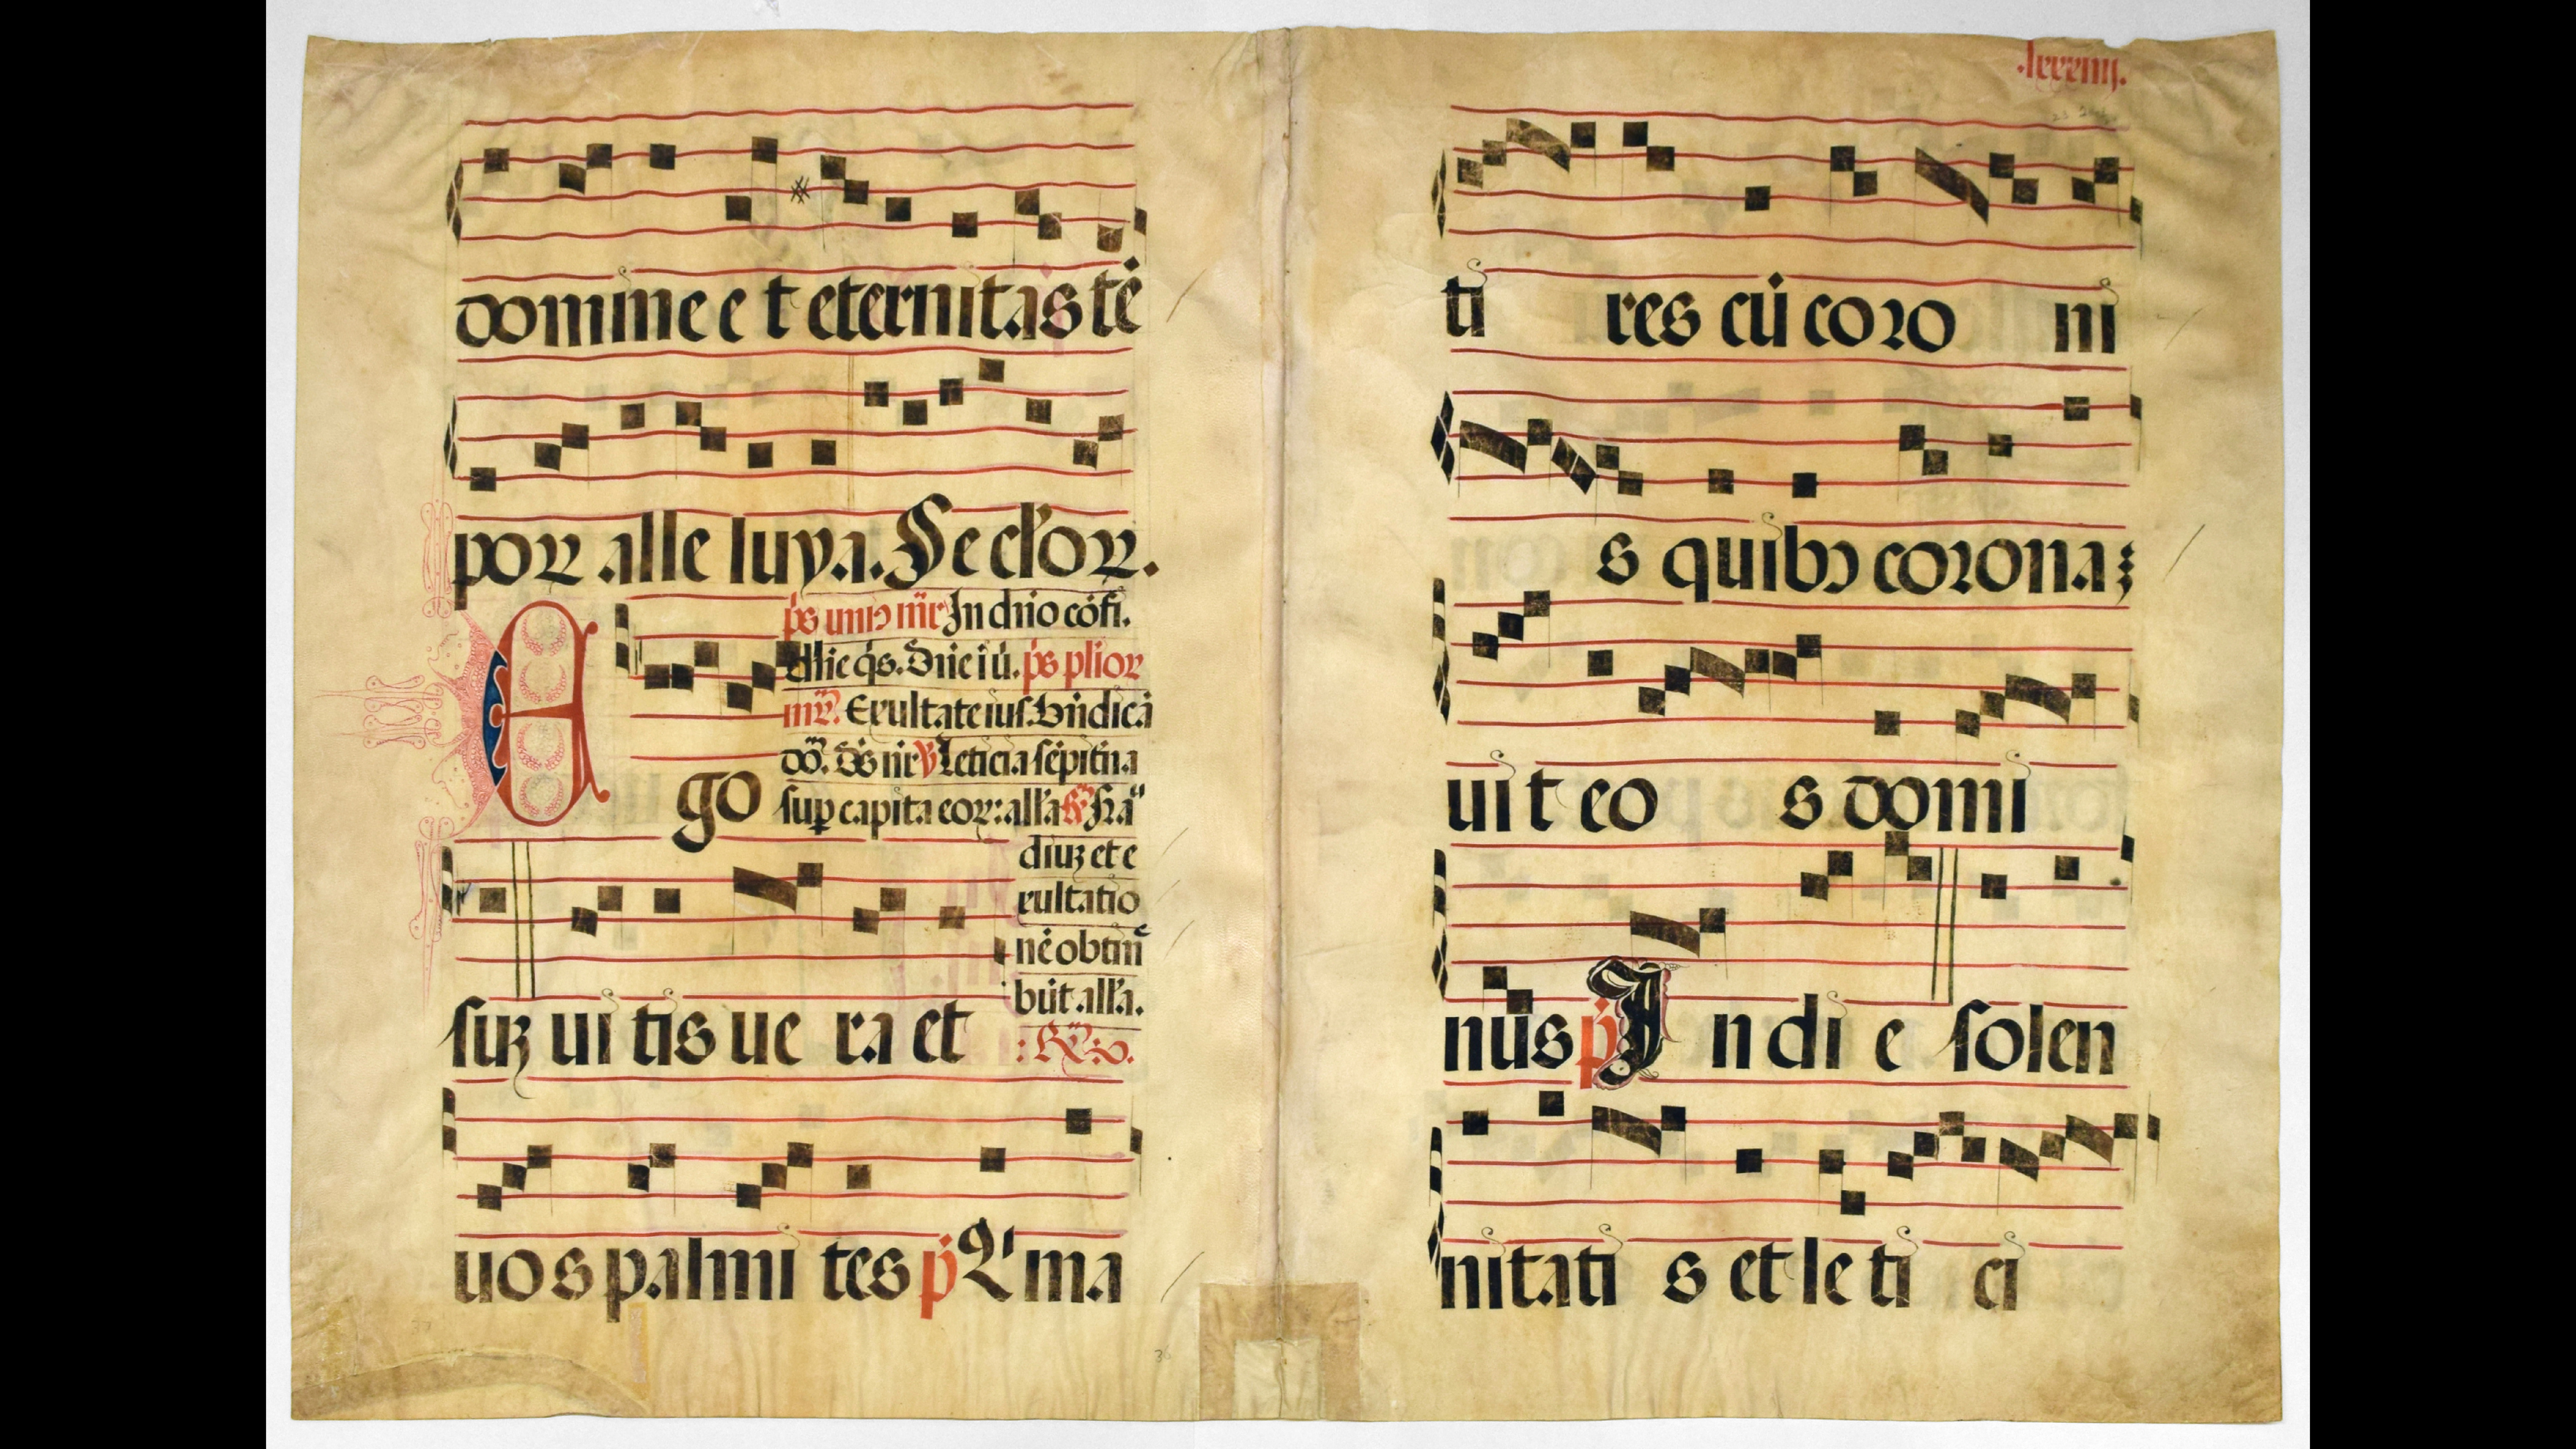 domine e t eternitas tē
por alle luya. Secl'or.
ps unius mr̄ In dn̄o cōfi.
dn̄e q̇s. Dn̄e i ū. ps plior
mr̄. Exultate ius. Bn̄dicā
dō. ds nr̄ Leticia sēpitna
sup capita eor: all'a
E go
diuȝ et e
xultatio
nē obtin̄
būt all'a.
suȝ ui tis ue ra et
uo s palmi tes p̄ Qi ma
.lxxxiiij.
ti res cū coro ni
s quibꝰ corona
uit eo s domi
nus p̄ I n di e solen
nitati s et le ti ci